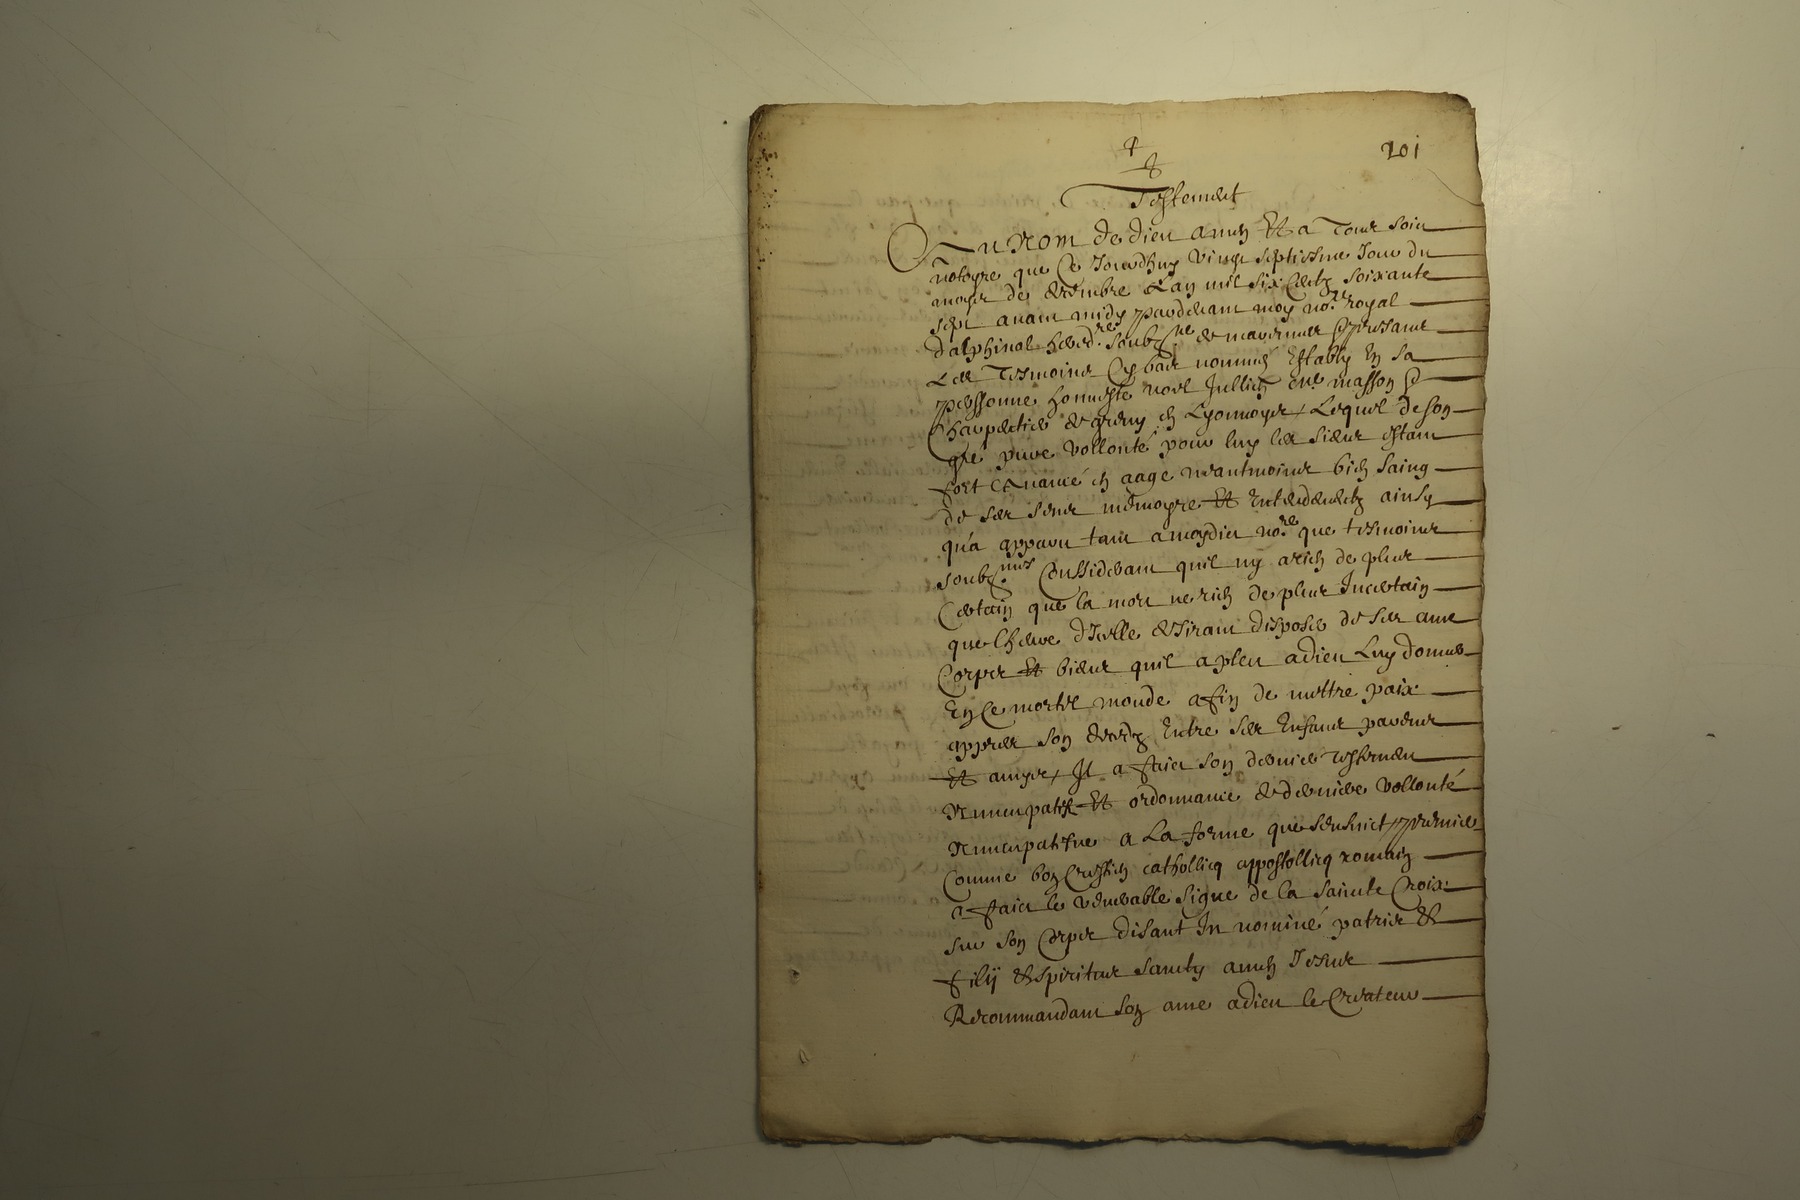 201
Testement
Au Nom de dieu amen Et a Tous soiet
notoyre que Ce Jourdhuy vingt septiesme Jour du
moys de decembre Lan mil six Centz soixante
sept avant midy pardevant moy no.re royal
dalphinal hered.re soubz.né et mayennant presance
Les Tesmoins Cy bas nommés Estably En sa
personne honneste Noel Jullien m.e masson
Charpentier de en Lyonnoys / Lequel de son
gré pure vollonté pour luy les sieus estant
fort avancé en aage neantmoins bien saing
de ses sens memoyre Et Entendementz ainsy
qu'a apparu tant a moydict no.re que tesmoins
soubz.nés Considerant quil ny a rien de plus
Certain que la mort ne rien de plus Incertain
que lheure dIcelle desirant disposer de ses ame
Corps Et biens quil a pleu a dieu Luy donner
En Ce mortel monde affin de mettre paix
appres son deces Entre ses Enfans parens
Et amys / Il a faict son dernier Testement
Nuncupatif Et ordonnance de derniere vollonté
Nuncupatifve a La forme que sensuict premier
Comme bon Crestien catholliq appostolliq romain
a faict le venerable signe de la saincte Croix
sur son Corps disant In nominé patris &
filij & spiritus sancty amen Jesus
Recommandant son ame a dieu le Createur